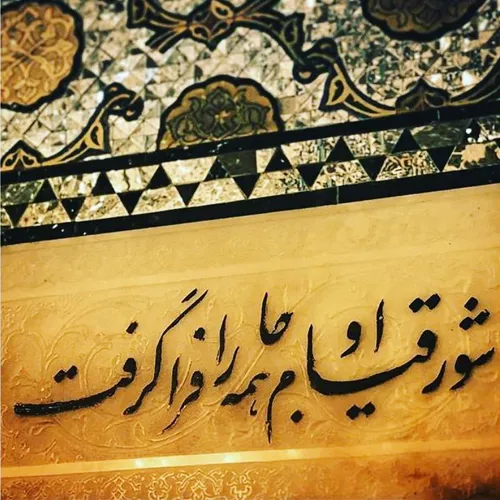 شور قیام او همه جا را فرا گرفت